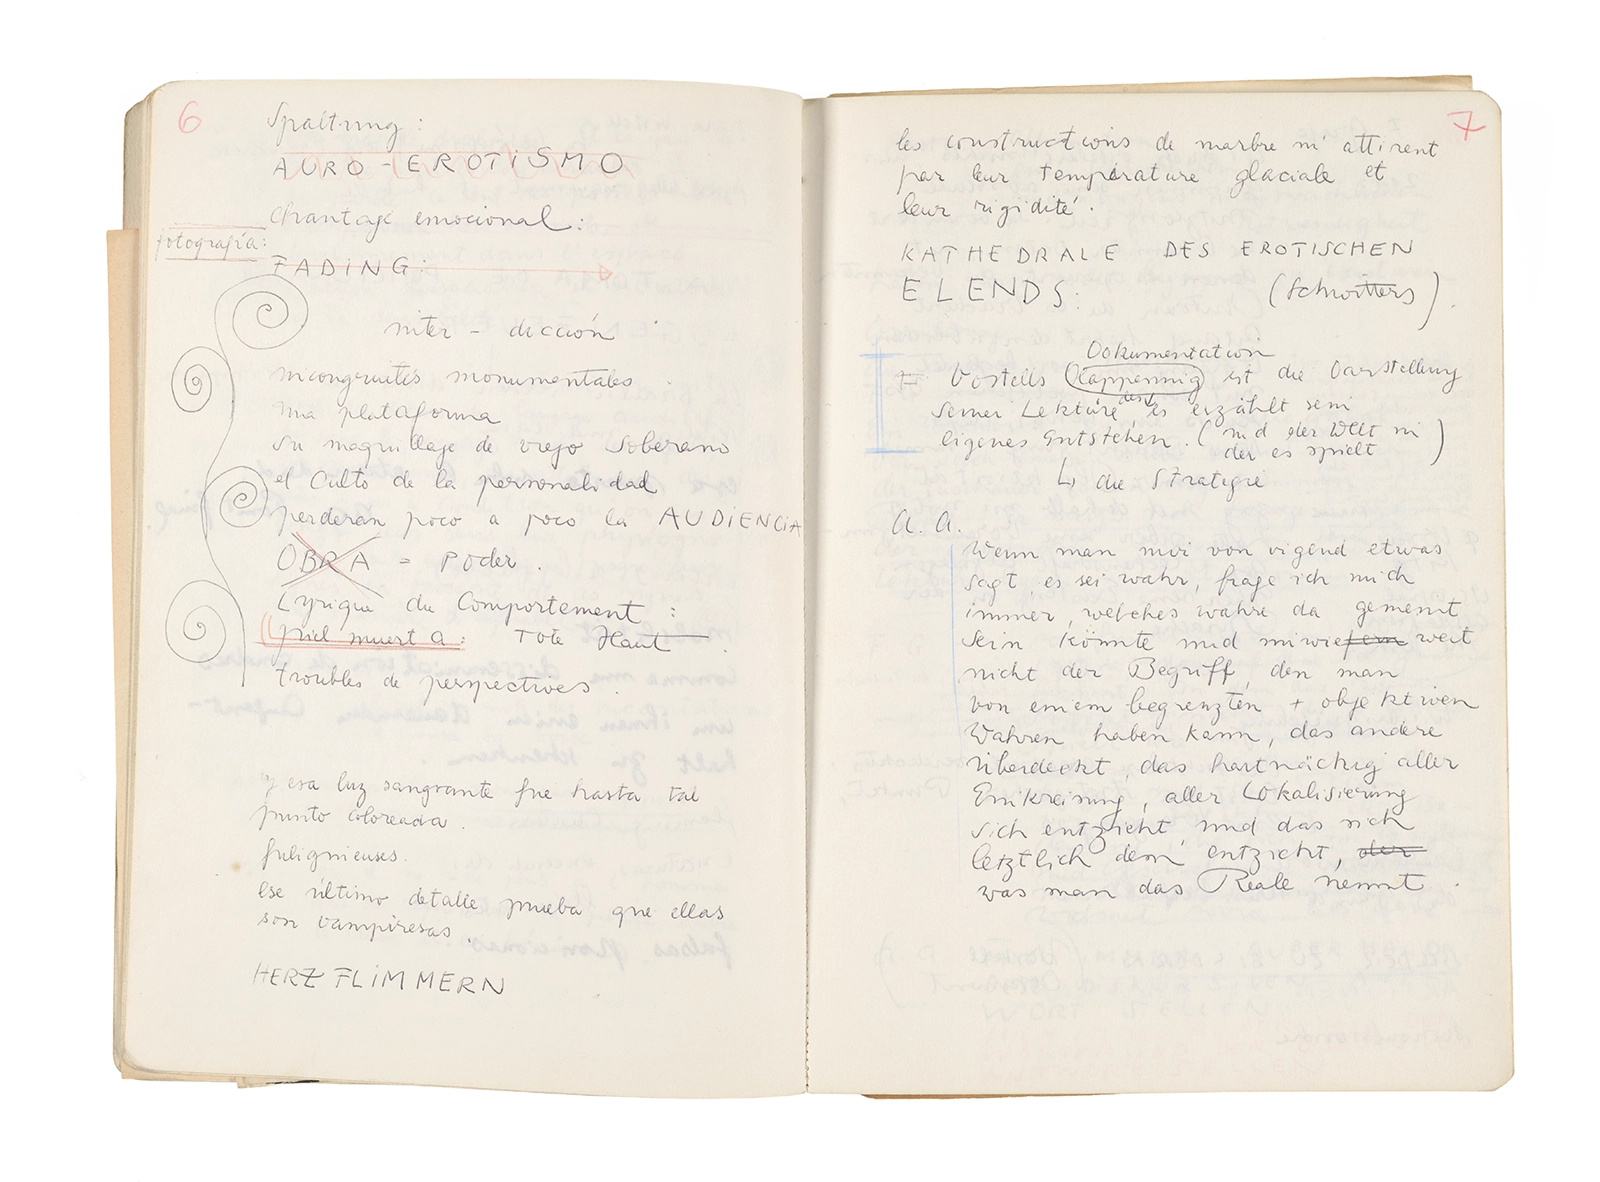 6
Spaltung:
AURO-EROTISMO
chantage emocional:
fotografía:
FADING:
inter-dicción
incongruités monumentales.
una plataforma
su maquillaje de viejo soberano
el culto de la personalidad
perderan poco a poco la AUDIENCIA
OBRA = Poder.
Lyrique du Comportement:
piel muerta: Tote Haut.
troubles de perspectives.
y esa luz sangrante fue hasta tal
punto coloreada.
fuligineuses.
ese último detalle prueba que ellas
son vampiresas.
HERZFLIMMERN
7
les constructions de marbre m'attirent
par leur température glaciale et
leur rigidité.
KATHEDRALE DES EROTISCHEN
ELENDS: (Schwitters).
Dokumentation
Vostells (Happening) ist die Darstellung
seiner Lektüre, es erzählt sein
eigenes Entstehen. (und der Welt in
der es spielt)
↳ die Strategie
A.A.
Wenn man mir von irgend etwas
sagt, es sei wahr, frage ich mich
immer, welches wahre da gemeint
sein könnte und inwiefern weit
nicht der Begriff, den man
von einem begrenzten + objektiven
Wahren haben kann, das andere
überdeckt, das hartnäckig aller
Einkreisung, aller Lokalisierung
sich entzieht und das sich
letztlich dem entzieht, der
was man das Reale nennt.